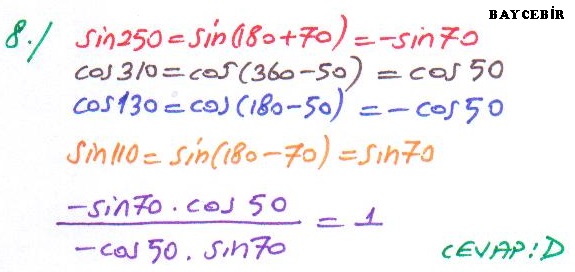 BAYCEBİR
8./ sin250=sin(180+70)=-sin70
cos310=cos(360-50)=cos50
cos130=cos(180-50)=-cos50
sin110=sin(180-70)=sin70
-sin70.cos50
-cos50.sin70
= 1
CEVAP:D